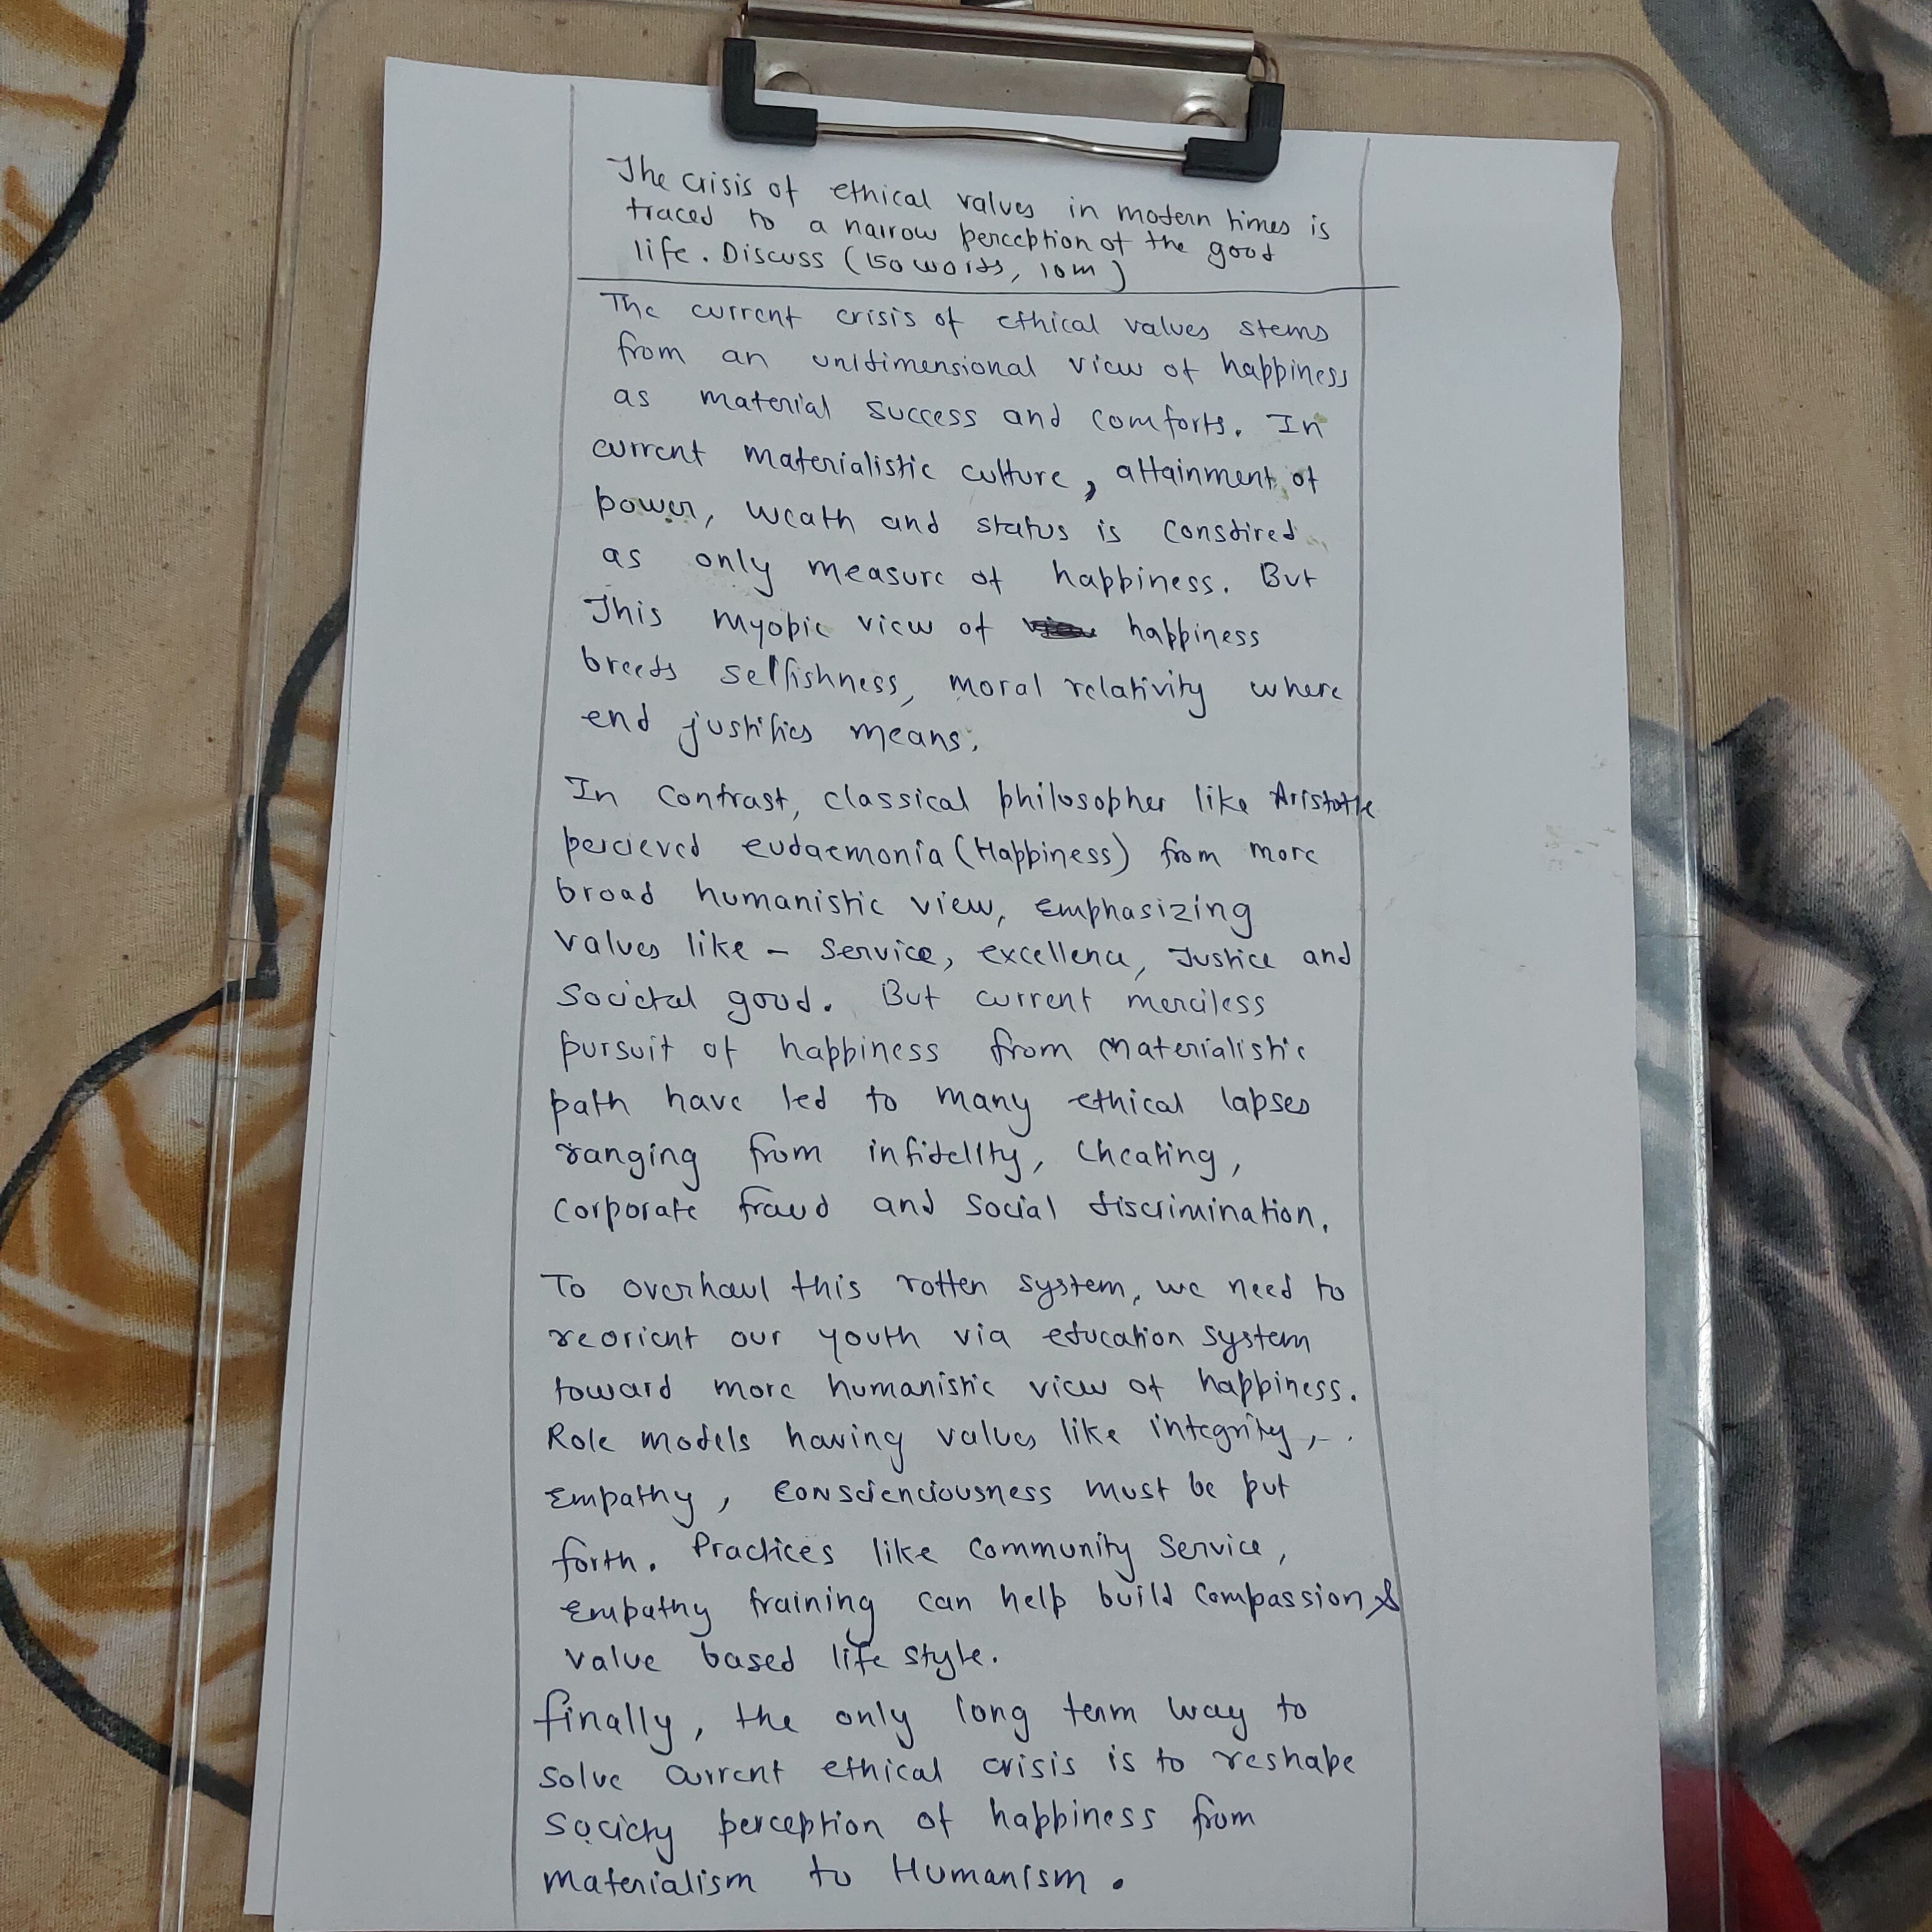 The crisis of ethical values in modern times is
traced to a narrow perception of the good
life. Discuss (150 words, 10m)
The current crisis of ethical values stems
from an unidimensional view of happiness
as material success and comforts. In
current materialistic culture, attainment of
power, weath and status is consdired
as only measure of happiness. But
This myopic view of happiness
breeds selfishness, moral relativity where
end justifies means.
In contrast, classical philosopher like Aristotle
percieved eudaemonia (Happiness) from more
broad humanistic view, emphasizing
values like - service, excellence, Justice and
societal good. But current merciless
pursuit of happiness from materialistic
path have led to many ethical lapses
ranging from infidelity, cheating,
corporate fraud and social discrimination.
To overhaul this rotten system, we need to
reorient our youth via education system
toward more humanistic view of happiness.
Role models having values like integrity,
Empathy, conscienciousness must be put
forth. Practices like community service,
Empathy training can help build compassion &
value based life style.
finally, the only long term way to
solve current ethical crisis is to reshape
society perception of happiness from
materialism to Humanism.